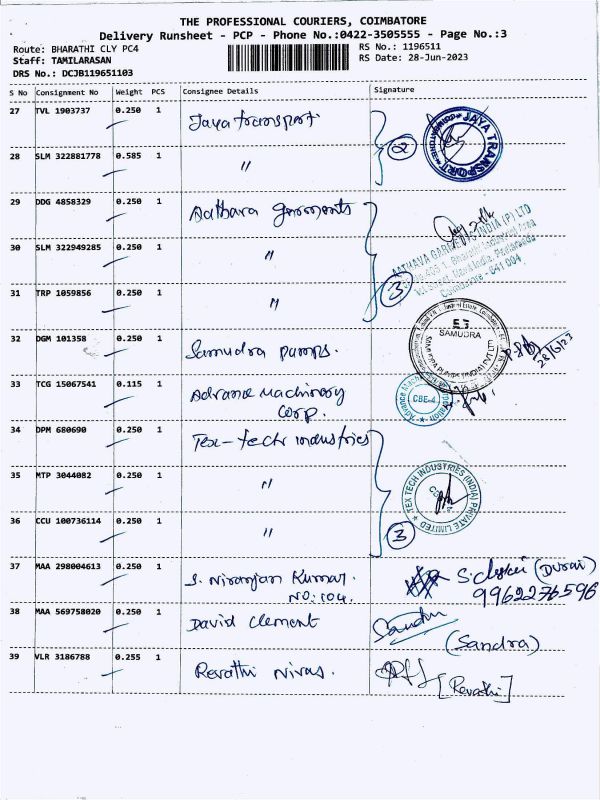 THE PROFESSIONAL COURIERS, COIMBATORE
Delivery Runsheet - PCP - Phone No.:0422-3505555 - Page No.:3
Route: BHARATHI CLY PC4 RS No.: 1196511
Staff: TAMILARASAN RS Date: 28-Jun-2023
DRS No.: DCJB119651103
S No Consignment No Weight PCS Consignee Details Signature
27 TVL 1903737 0.250 1 Jaya transport 2 JAYA TRANSPORT
28 SLM 322881778 0.585 1 "
29 DDG 4858329 0.250 1 Aathava garments
30 SLM 322949285 0.250 1 " 3 AATHAVA GARMENTS INDIA (P) LTD
Coimbatore - 641 004
31 TRP 1059856 0.250 1 "
32 DGM 101358 0.250 1 Samudra pumps. SAMUDRA 28/6/23
33 TCG 15067541 0.115 1 Advance Machinery
Corp. CBE-4
34 DPM 680690 0.250 1 Tex-tech industries
35 MTP 3044082 0.250 1 " TEX TECH INDUSTRIES (INDIA) PRIVATE LIMITED
36 CCU 100736114 0.250 1 " 3
37 MAA 298004613 0.250 1 S. Niranjan Kumar. (Durai)
NO: 104. 9962276596
38 MAA 569758020 0.250 1 David Clement Sandra
(Sandra)
39 VLR 3186788 0.255 1 Revathi Nivas. [Revathi]